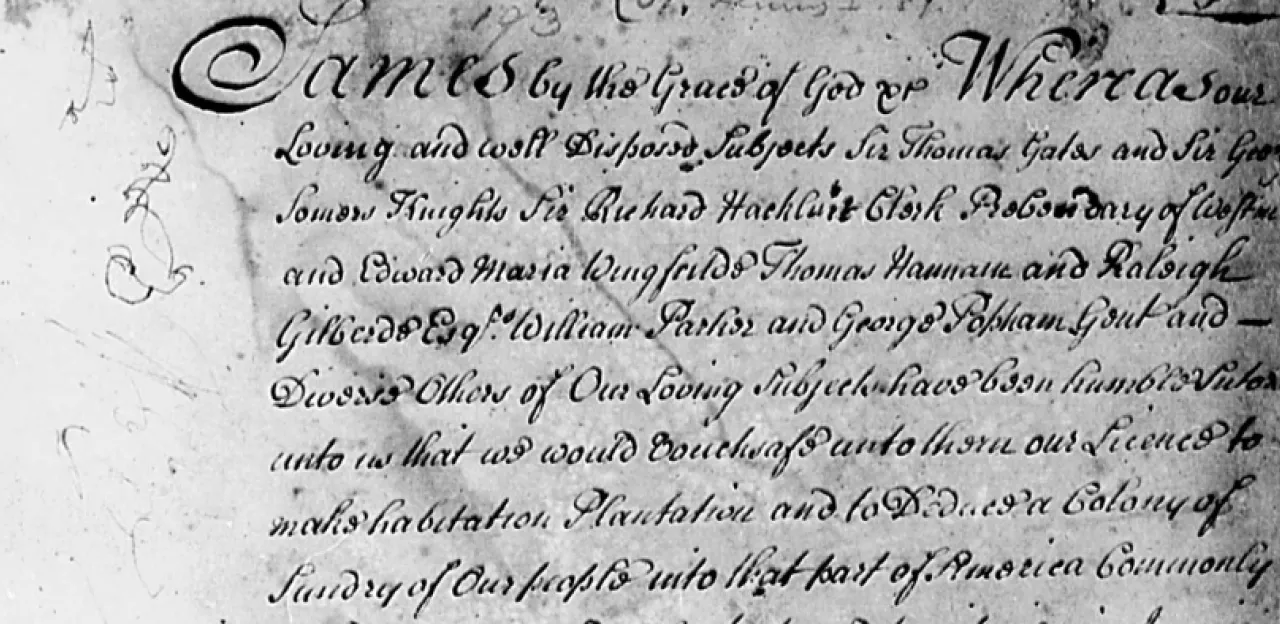 James by the Grace of God &c Whereas our
Loving and well Disposed Subjects Sir Thomas Gates and Sir Geo
Somers Knights Sir Richard Hackluit Clerk Prebendary of Westm
and Edward Maria Wingfeilde Thomas Hannam and Raleigh
Gilberde Esqrs. William Parker and George Popham Gent and —
Diverse Others of Our Loving Subjects have been humble Sutors
unto us that we would vouchsafe unto them our Licence to
make habitation Plantation and to Deduce a Colony of
Sundry of Our people into that part of America Commonly